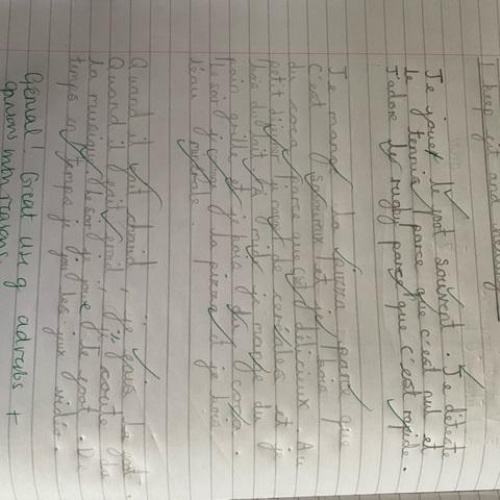 I keep fit and healthy
Je jouer le foot souvent. Je déteste
le tennis parce que c'est nul et
J'adore le rugby parce que c'est rapide.
Je mange la pizza parce que
C'est savoureux et je bois
du coca parce que c'est délicieux. Au
petit déjeuner je mange de céréales et je
bois du lait. À midi je mange du
pain grillé et je bois du coca.
Le soir je mange la pizza et je bois
l'eau minérale.
Quand il fait chaud, je fais le foot.
Quand il fait froid, j'écoute du
la musique. Le soir je joue le foot. De
temps en temps je joue les jeux vidéo.
Génial! Great use of adverbs +
opinions with reasons